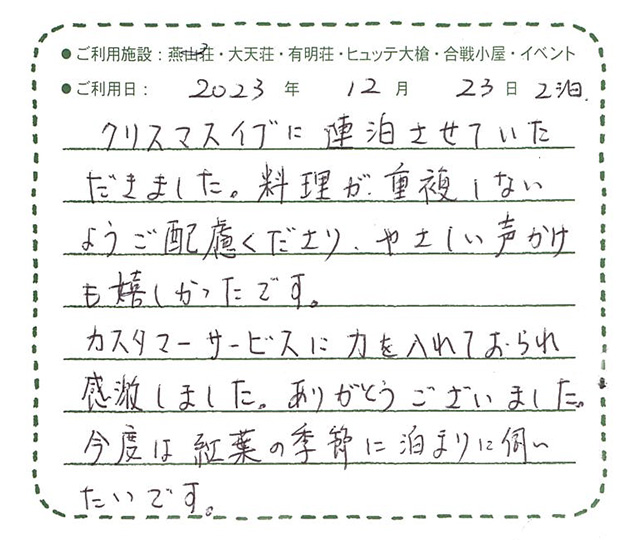 ●ご利用施設：燕山荘・大天荘・有明荘・ヒュッテ大槍・合戦小屋・イベント
●ご利用日： 2023 年 12 月 23 日 2泊.
クリスマスイブに 連泊させていた
だきました。料理が重複しない
ようご配慮くださり、やさしい声かけ
も嬉しかったです。
カスタマーサービスに力を入れておられ
感激しました。ありがとうございました。
今度は紅葉の季節に泊まりに伺い
たいです。